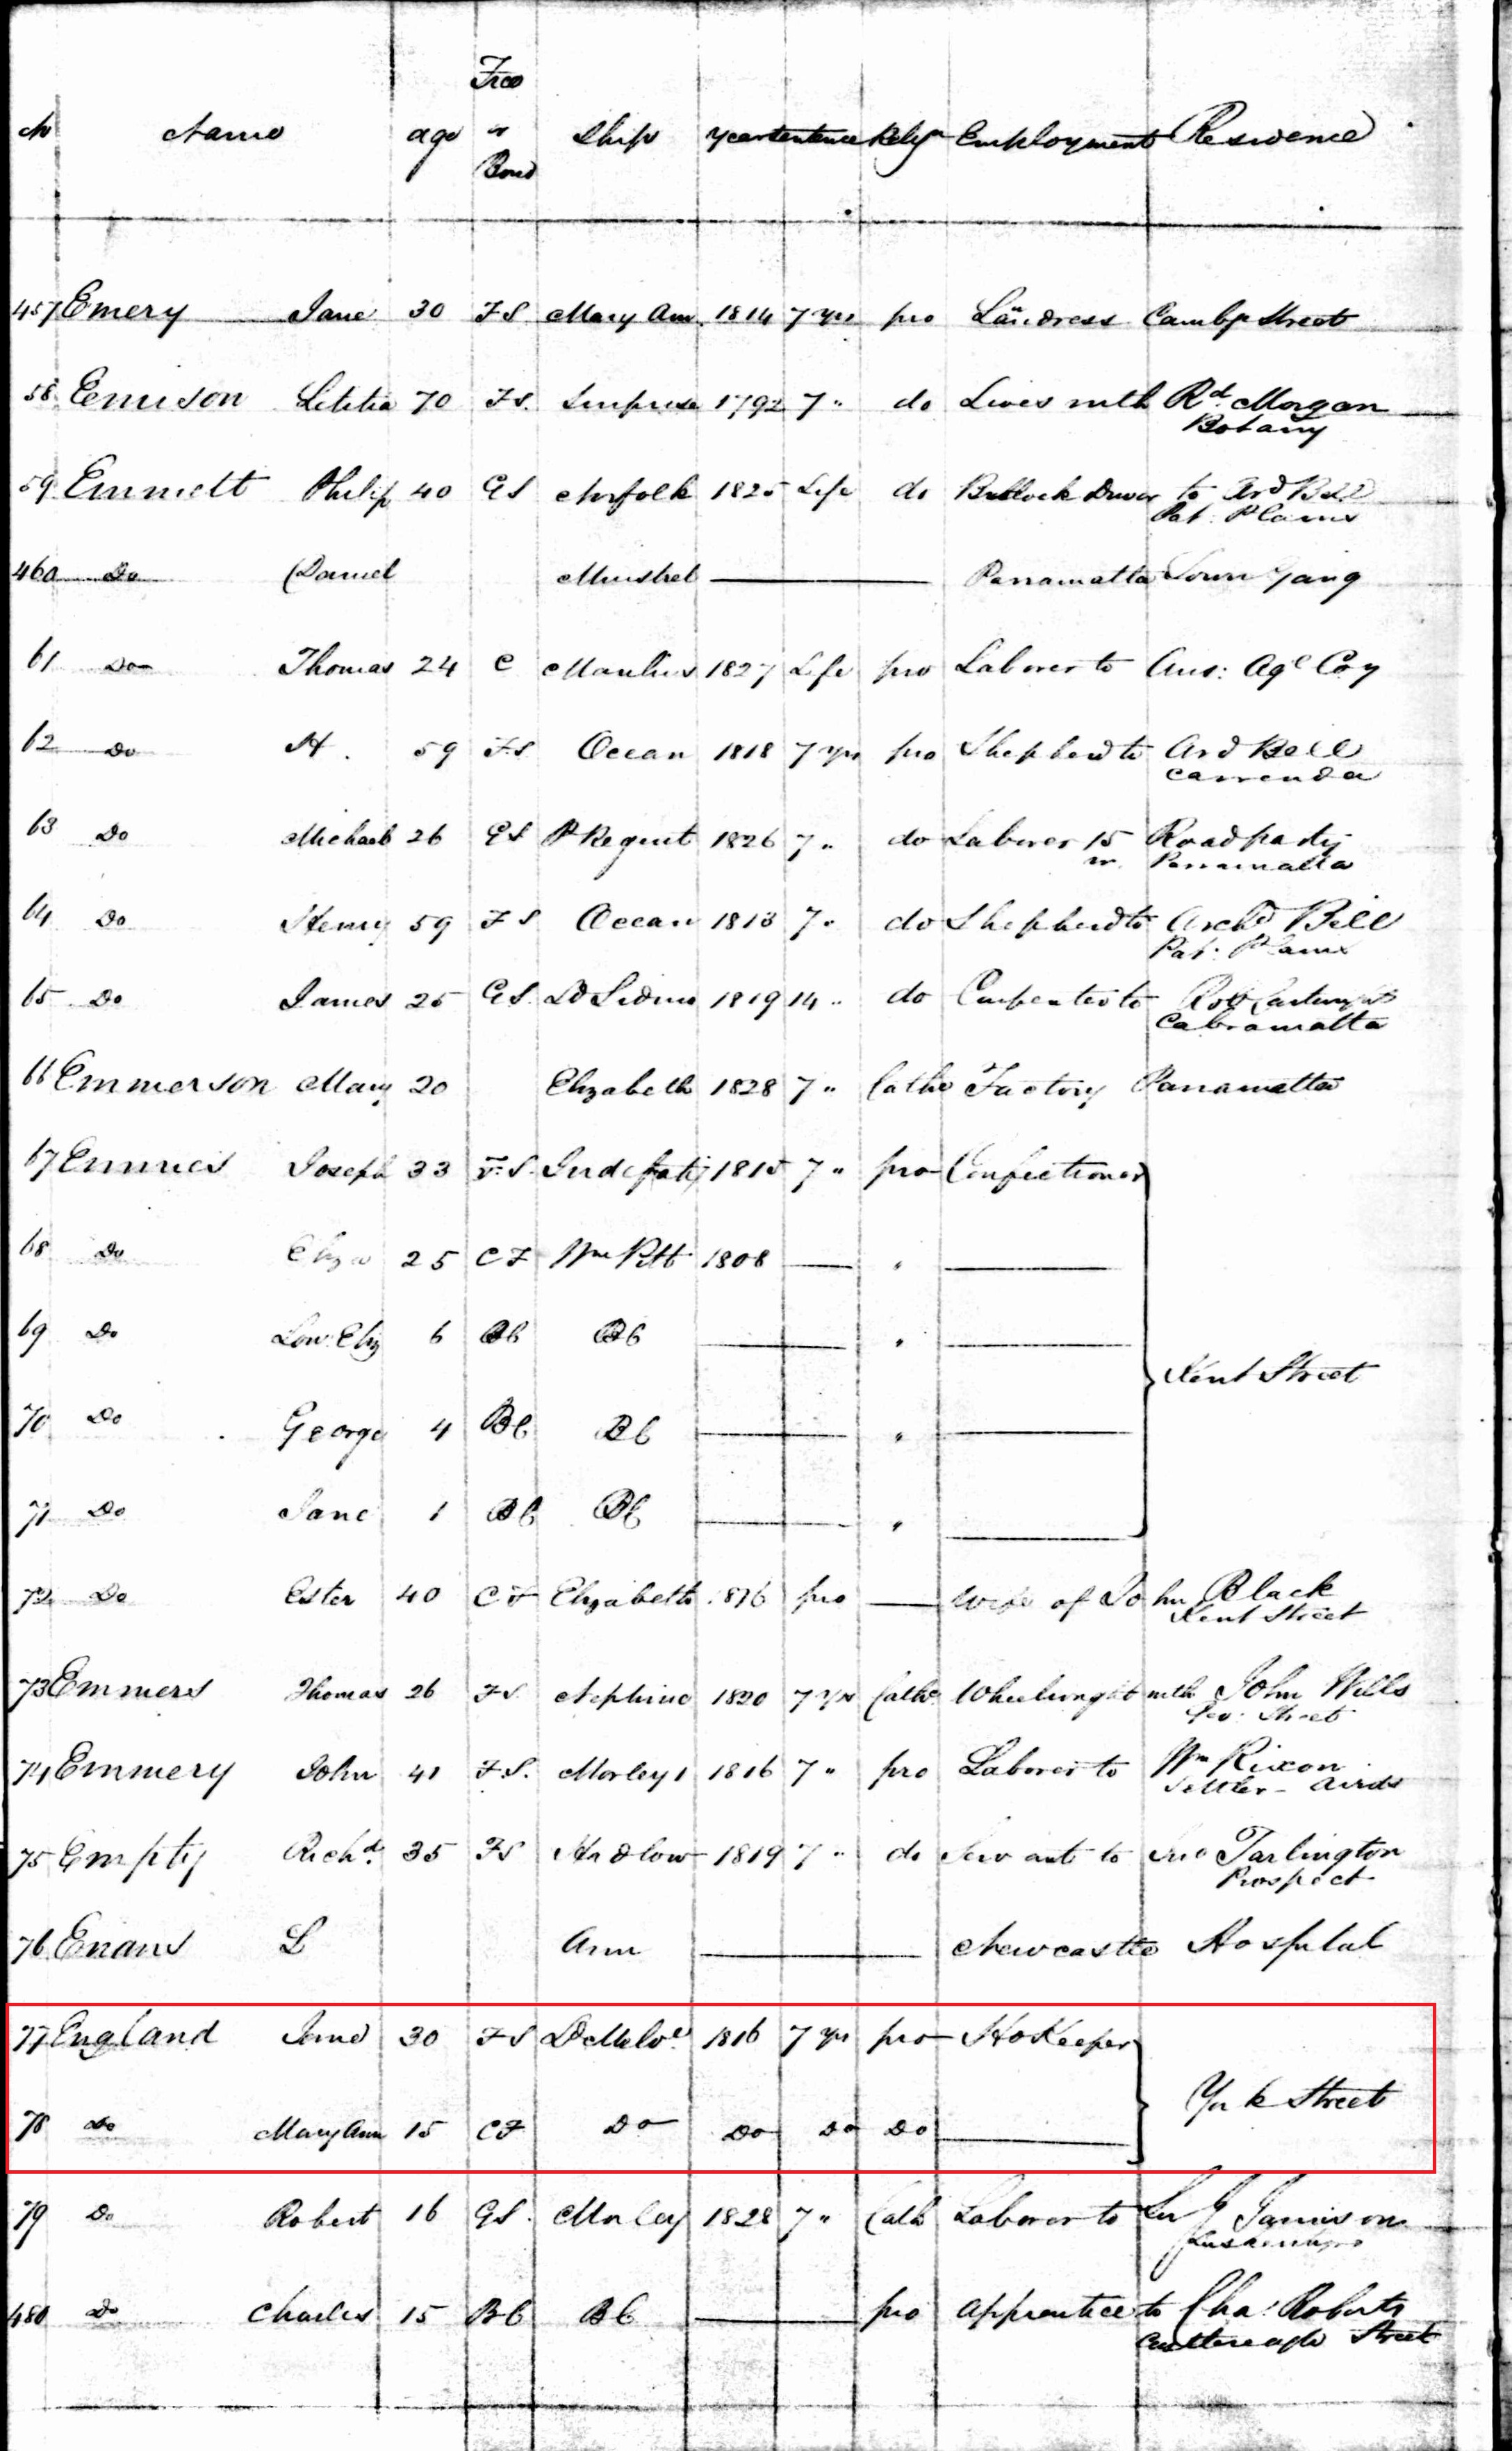 No Name age Free or Bond Ship year sentence Relgn Employment Residence
457 Emery Jane 30 F S Mary Ann 1814 7 yrs pro Laundress Cambge Street
58 Letitia 70 F S. 1792 7 " do Lives with Rd. Morgan
Botany
59 Emmett Philip 40 G S Norfolk 1825 Life do Bullock Driver to Ard Bell
Pat: Plains
460 Do Daniel Minstrel Parramatta Town Gang
61 Do Thomas 24 C Manlius 1827 Life pro Laborer to Aus: Agl Coy
62 Do H. 59 F S Ocean 1818 7 yrs pro Shepherd to Ard Bell
63 Do Michael 26 G S P Regent 1826 7 " do Laborer 15 Road party
Parramatta
64 Do Henry 59 F S Ocean 1818 7 " do Shepherd to Archd Bell
Pat: Plains
65 Do James 25 G S. Ld Sidmo 1819 14 " do Carpenter to
Cabramatta
66 Emmerson Mary 20 Elizabeth 1828 7 " Catho Factory Parramatta
67 Joseph 33 F. S. Indefatig 1815 7 " pro Confectioner
68 Do Eliza 25 C F Wm Pitt 1808 "
69 Do 6 B C B C "
Kent Street
70 Do George 4 B C B C "
71 Do Jane 1 B C B C "
72 Do Ester 40 C F Elizabeth 1816 pro wife of John Black
Kent Street
73 Emmers Thomas 26 F S Neptune 1820 7 yrs Catho Wheelwright with John Wills
Geo: Street
74 Emmery John 41 F. S. Morley 1 1816 7 " pro Laborer to Wm Rixon
Settler - Airds
75 Empty Richd. 35 F S Hadlow 1819 7 " do Servant to Jno Tarlington
Prospect
76 Enans L Ann Newcastle Hospital
77 England Jane 30 F S 1816 7 yrs pro Ho Keeper
York Street
78 Do Mary Ann 15 C F Do Do Do Do
79 Do Robert 16 G S. Morley 1828 7 " Cath Laborer to J Jamison
480 Do Charles 15 B C B C pro apprentice to Chas: Roberts
Castlereagh Street